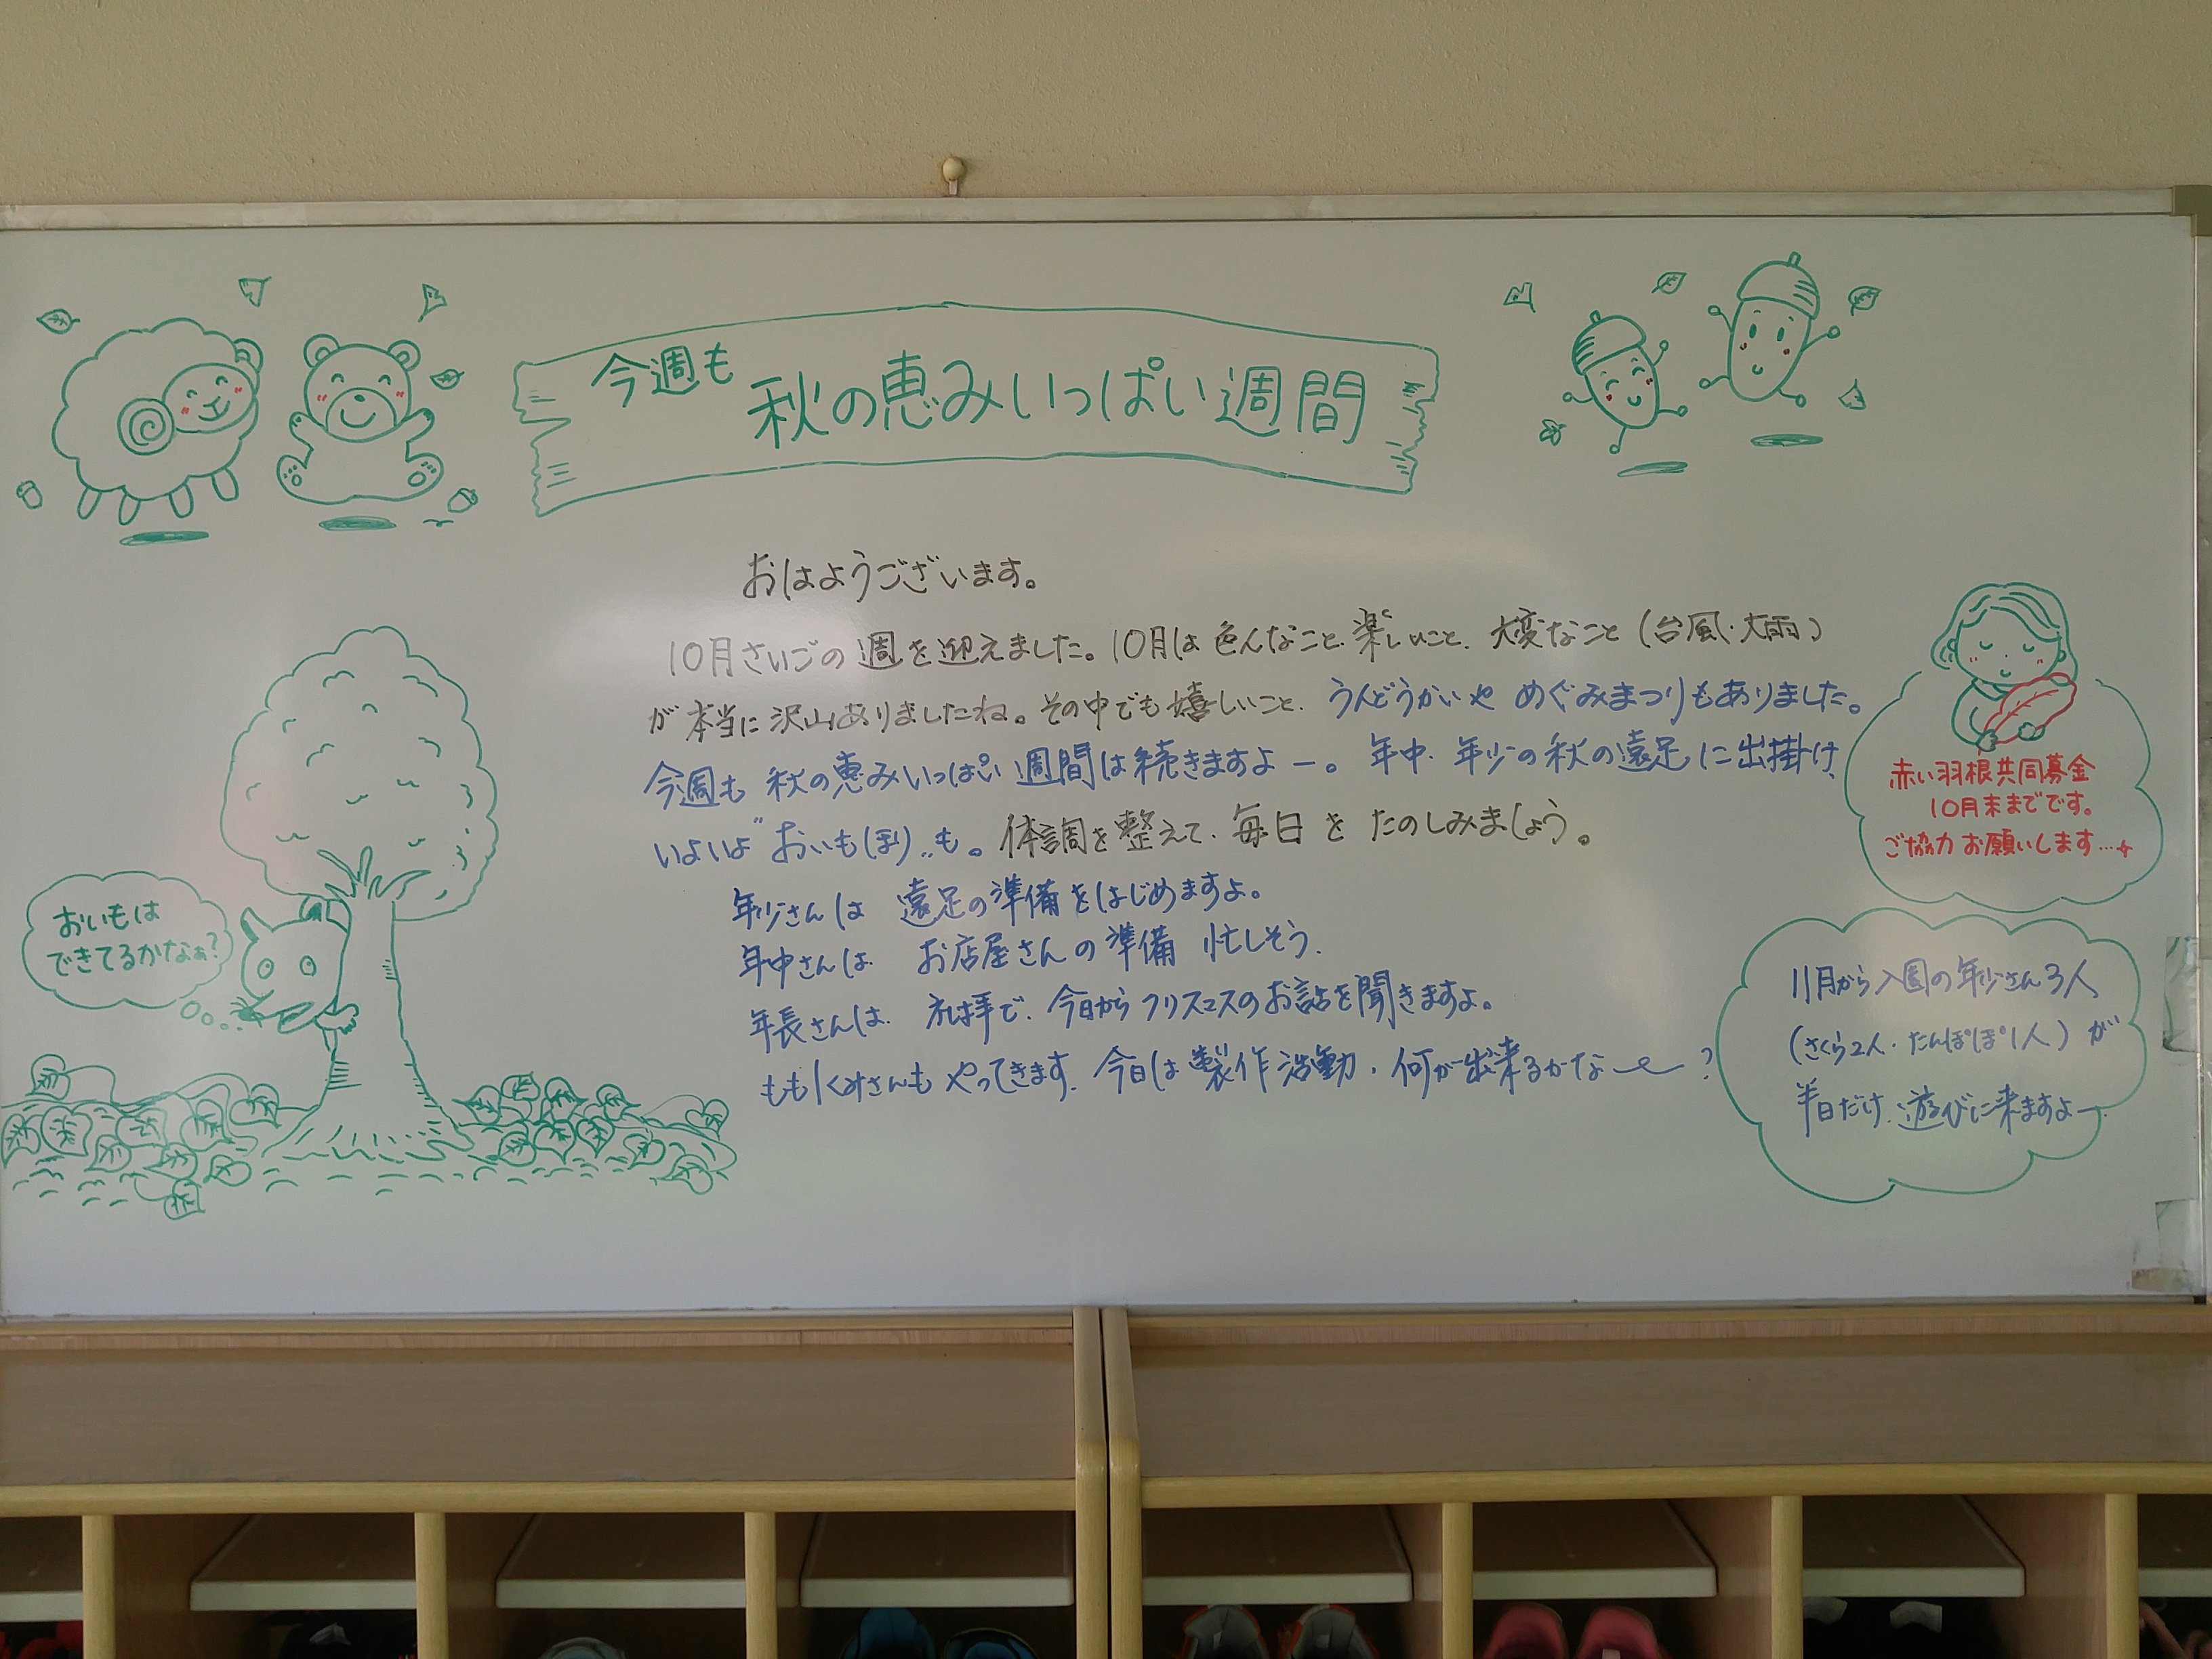 今週も 秋の恵みいっぱい週間
おはようございます。
10月さいごの週を迎えました。10月は色んなこと、楽しいこと、大変なこと(台風・大雨)
が本当に沢山ありましたね。その中でも嬉しいこと、うんどうかいや めぐみまつりもありました。
今週も 秋の恵みいっぱい週間は続きますよー。年中、年少の秋の遠足に出掛け、
いよいよ"おいもほり"も。体調を整えて、毎日を たのしみましょう。
年少さんは 遠足の準備をはじめますよ。
年中さんは、お店屋さんの準備 忙しそう、
年長さんは、礼拝で、今日からクリスマスのお話を聞きますよ。
ももぐみさんもやってきます、今日は製作活動、何が出来るかな〜?
おいもは
できてるかなぁ?
赤い羽根共同募金
10月末までです。
ご協力お願いします…
11月から入園の年少さん3人
(さくら2人・たんぽぽ1人)が
半日だけ、遊びに来ますよー